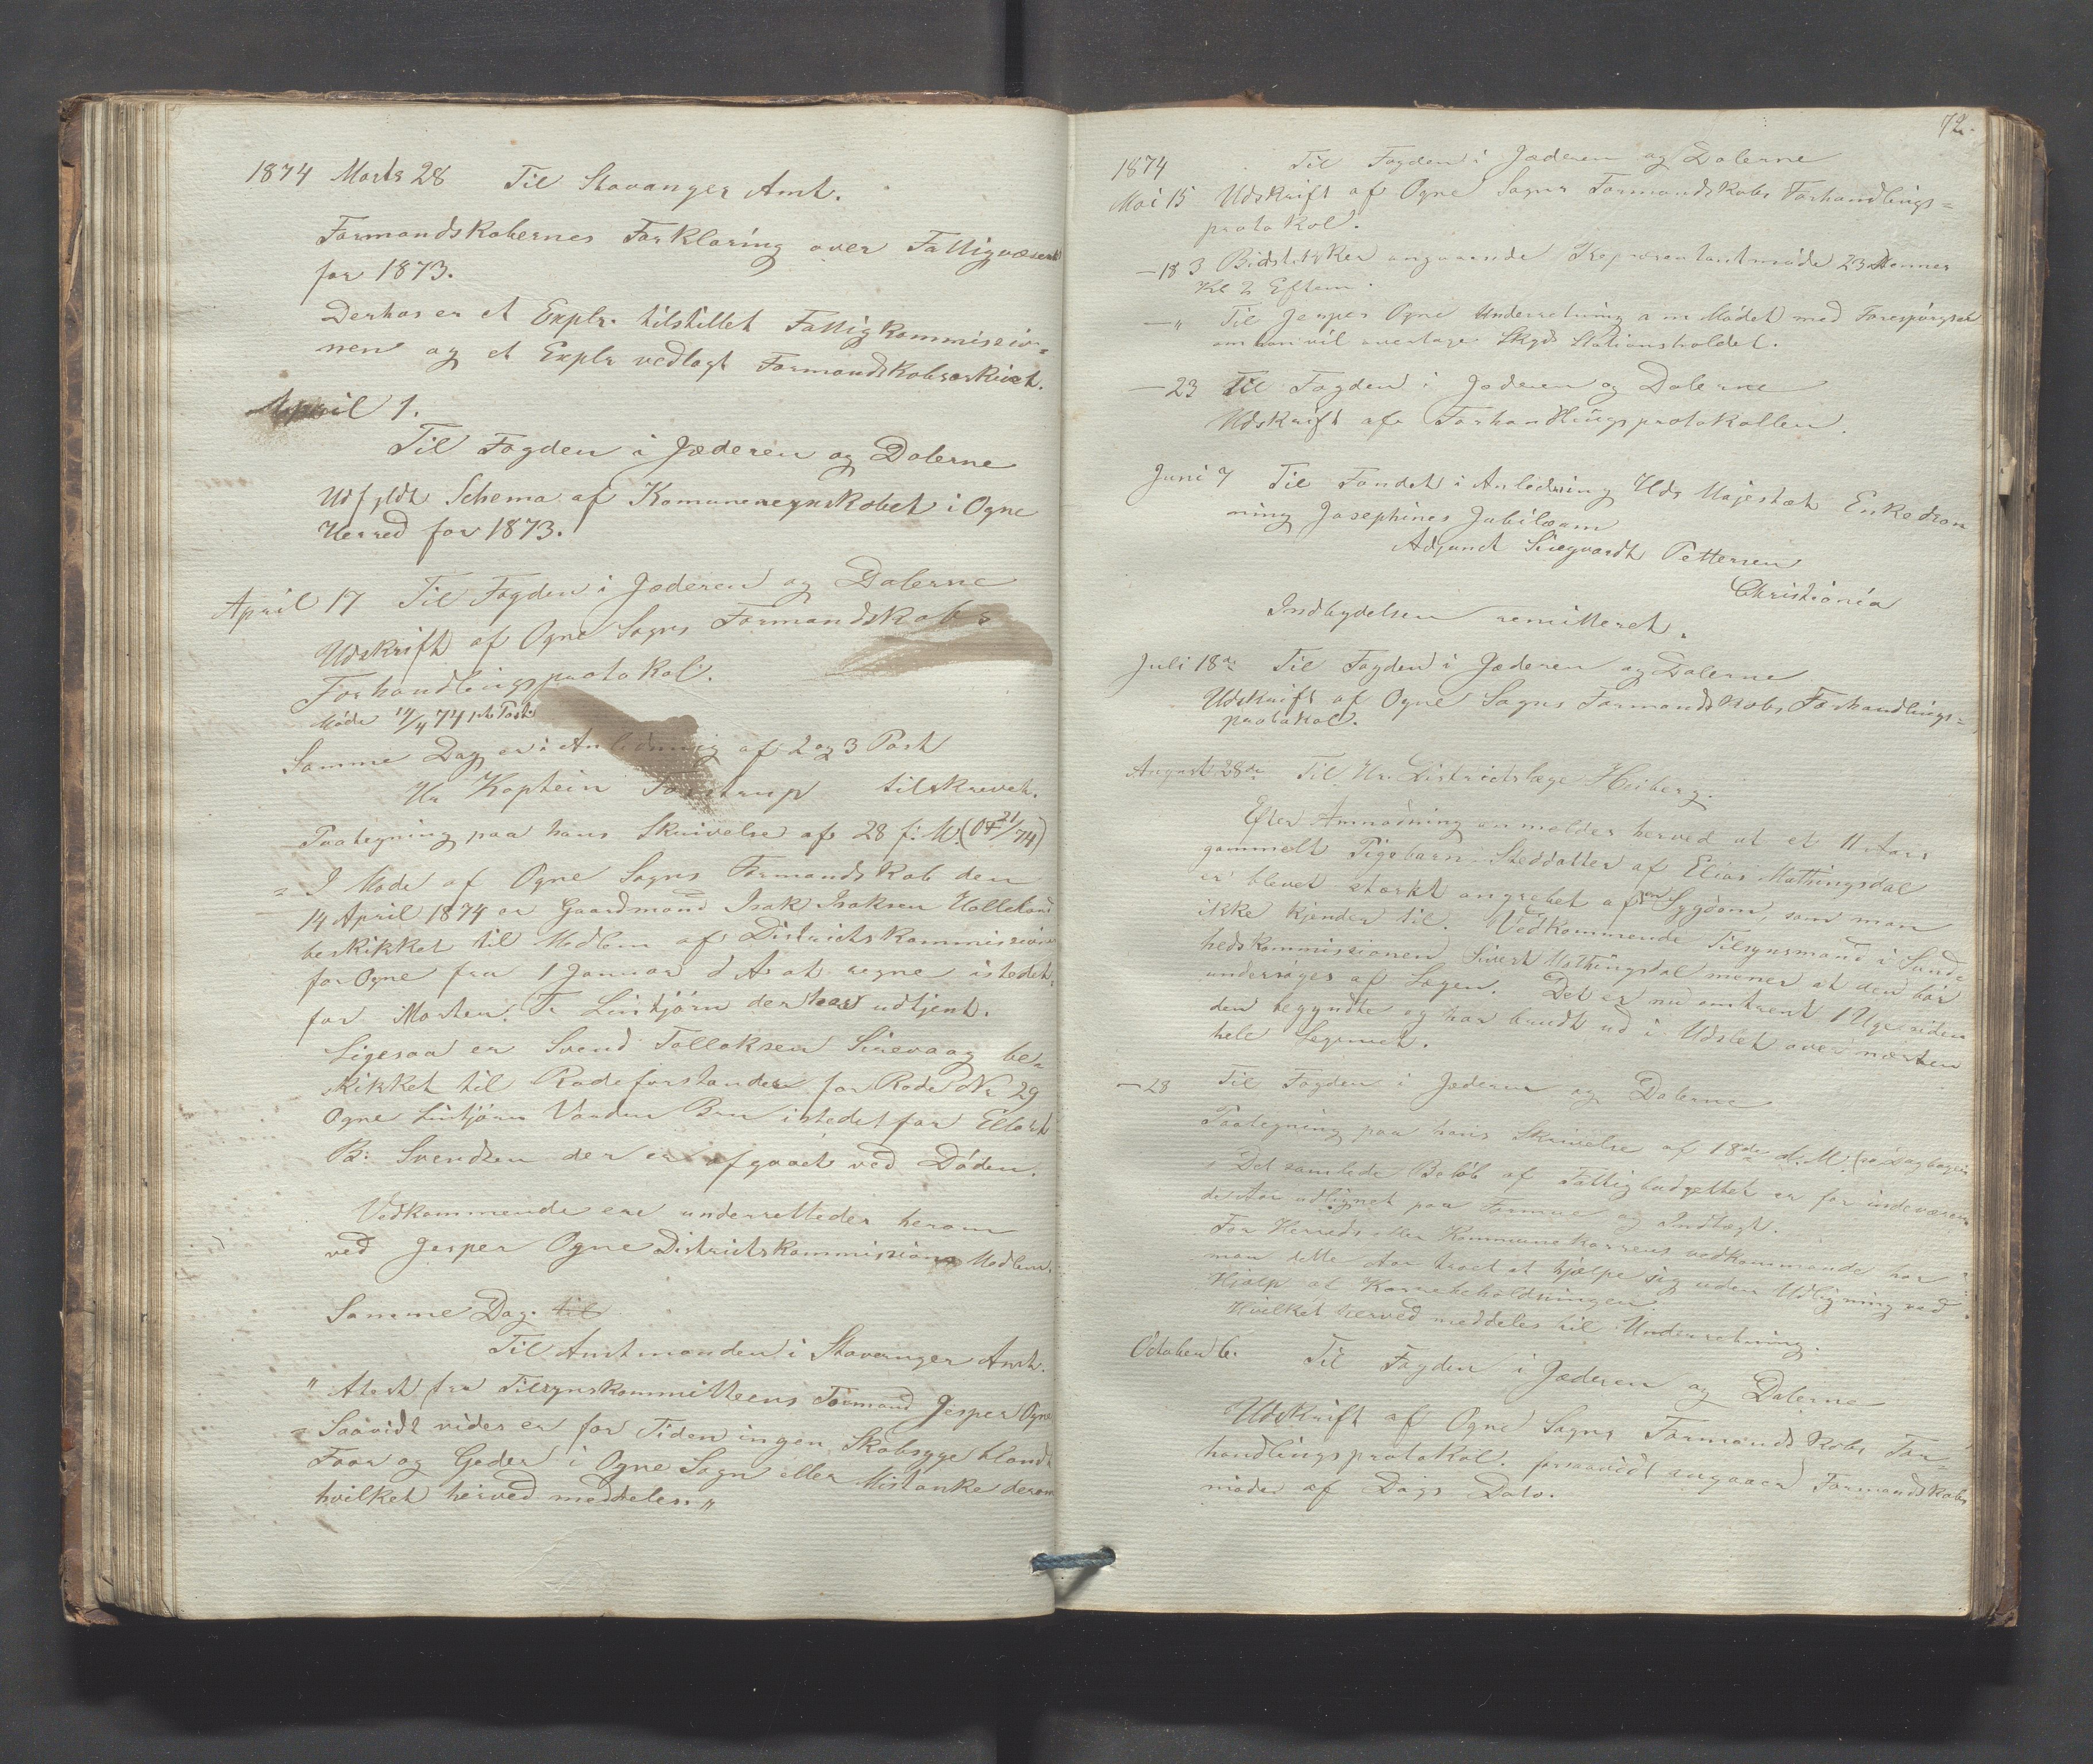 1874 Marts 28 Til Stavanger Amt.
Formandskabernes Forklaring over Fattigvæsenet
for 1873.
Derhos er et Explr. tilstillet Fattigkommissio=
nen og et Explr vedlagt Formandskabsarkivet.
April 1.
Til Fogden i Jæderen og Dalerne
Udfyldt Schema af Komuneregnskabet i Ogne
Herred for 1873.
April 17 Til Fogden i Jæderen og Dalerne
Udskrift af Ogne Sogns Formandskabs
Forhandlingsprotokol.
Möde 14/4 74 Post.
Samme Dag er i Anledning af 2 og 3 Post
Hr Kaptein tilskrevet.
Paategning paa hans Skrivelse af 28 f: M. (21/74)
= I Möde af Ogne Sogns Formandskab den
14 April 1874 er Gaardmand Isak Isaksen Hølleland
beskikket til Medlem af Districtskommissionen
for Ogne fra 1 Januar d A at regne istedet
for Morten T. Lintjörn der har udtjent.
Ligesaa er Svend Tollaksen Sirevaag be=
skikket til Rodeforstander for Rode No 29
Ogne Lintjörn Varden Bru istedet for Ellert
B: Svendsen der er afgaaet ved Döden.
Vedkommende ere underrettedes herom
ved Jesper Ogne Districtskommissions Medlem.
Samme Dag. til
Til Amtmanden i Stavanger Amt.
" Atest fra Tilsynskommitteens Formand Jesper Ogne
= Saavidt vides er for Tiden ingen Skabsyge blandt
Faar og Geder i Ogne Sogn eller Mistanke derom
hvilket herved meddeles "
72.
1874 Til Fogden i Jæderen og Dalerne
Mai 15 Udskrift af Ogne Sogns Formandskabs Forhandlings=
protokol.
— 18 3 Bidstikker angaaende Repræsentantmöde 23 dennes
Kl 2 Efterm.
— " Til Jesper Ogne Underretning om Mödet med Forespörgsel
om han vil overtage Skyds Stationsholdet.
— 23 Til Fogden i Jæderen og Dalerne
Udskrift af Forhandlingsprotokollen.
Juni 7 Til Fondet i Anledning Hds Majestæt Enkedron
ning Josephines Jubilæum
Adjunct Siegvardt Pettersen
Christiania
Indbydelsen remitteret.
Juli 18de Til Fogden i Jæderen og Dalerne
Udskrift af Ogne Sogns Formandskabs Forhandlings=
protokol.
August 28de Til Hr. Districtslæge Heiberg.
Efter Anmodning anmeldes herved at et 11 Aars
gammelt Pigebarn Steddatter af Elias Mathingsdal
er blevet stærkt angrebet af en Sygdom, som man
ikke kjender til. Vedkommende Tilsynsmand i Sund
hedskommissionen Sivert Mathingsdal mener at den bör
undersöges af Lægen. Det er nu omtrent 1 Uge siden
den begyndte og har brudt ud i Udslet over næsten
hele Legemet.
— 28 Til Fogden i Jæderen og Dalerne
Paategning paa hans Skrivelse af 18de d. M.
Det samlede Belöb af Fattigbudgettet er for indeværen
de Aar udlignet paa Formue og Indtægt.
For Herreds eller Kommunekassens vedkommende har
man dette Aar troet at hjælpe sig uden Udligning ved
Hjælp af Kassebeholdningen.
Hvilket herved meddeles til Underretning.
October 6. Til Fogden i Jæderen og Dalerne
Udskrift af Ogne Sogns Formandskabs For=
handlingsprotokol. forsaavidt angaaer Formandskabs
möder af Dags Dato.